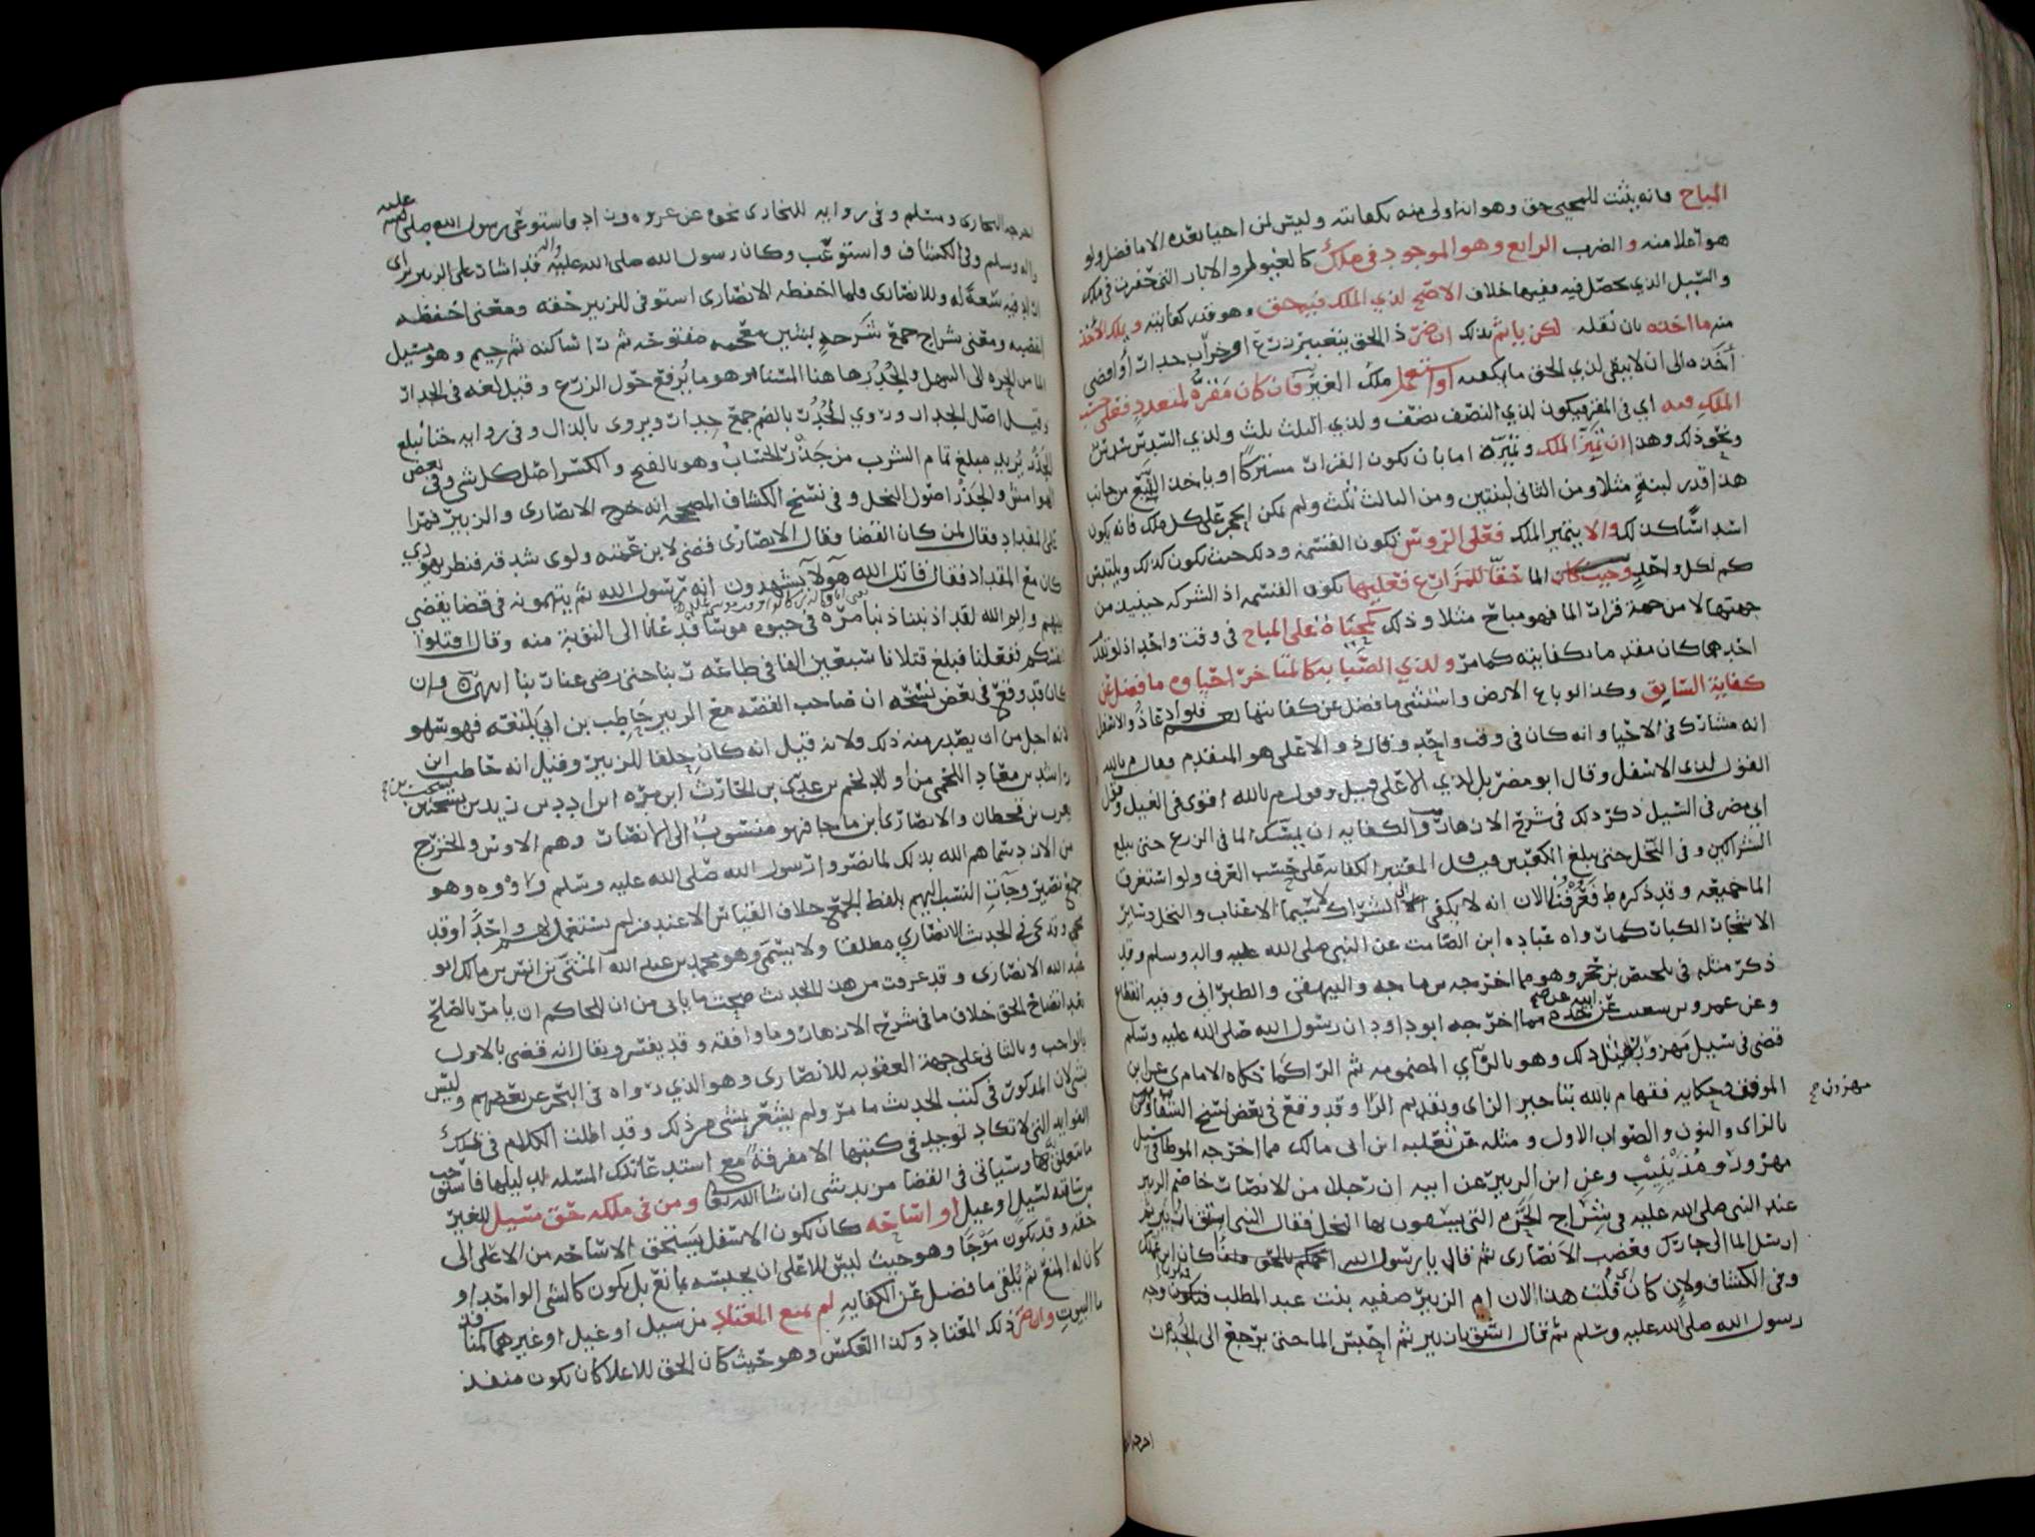 المباح فانه يثبت للمحيي حق وهو انه اولى منه بكفايته وليس لمن احيا بعده الا ما فضل ولو
هو اعلا منه والضرب الرابع وهو الموجود في ملك كالعيون والابار التي حفرت في ملك
والسيل الذي يحصل فيه ففيها خلاف الاصح لذي الملك فيه حق وهو قدر كفايته ويملك الاخذ
منه ما اخذه بان نقله لكن ياثم بذلك ان ضر ذا الحق بتغيير زرع او خراب جدار او افضى
اخذه الى ان لا يبقى لذي الحق ما يكفيه او استعمل ملك الغير فان كان مقره لمتعدد فعلى حسب
الملك فيه اي في المقر فيكون لذي النصف نصف ولذي الثلث ثلث ولذي السدس سدس
ونحو ذلك وهذا ان تميز الملك وتميزه اما بان يكون القرار مشتركا او ياخذ النبع من جانب
هذا قدر لبنة مثلا ومن الثاني لبنتين ومن الثالث ثلث ولم يمكن الحجر على كل ملك فانه يكون
كذلك والا يتميز الملك فعلى الرؤس تكون القسمة وذلك حيث يكون كذلك ويلتبس
كم لكل واحد وحيث كان الما حقا للمزارع فعليها تكون القسمه اذ الشركه حينئذ من
جهتها لا من جهة قرار الما فهو مباح مثلا وذلك كمحياة على المباح في وقت واحد اذ لو تملك
احدهما كان مقدم ما بكفايته كما مر ولذي الصبابه كالمتاخر احياوه ما فضل عن
كفاية السابق وكذا لو باع الارض واستثنى ما فضل عن كفايتها فلو ادعا ذو الاسفل
انه مشارك في الاحيا وانه كان في وقت واحد وقال ذو الاعلى هو المتقدم فقال م بالله
القول لذي الاسفل وقال ابو مضر بل لذي الاعلى قيل وقول م بالله اقوى في الغيل وقول
ابي مضر في السيل ذكر ذلك في شرح الازهار والكفايه ان يمسك الما في الزرع حتى يبلغ
الشراكين وفي النخل حتى يبلغ الكعبين وقيل المعتبر الكفايه على حسب العرف ولو استغرق
الما جميعه وقد ذكره ط فعرفنا الان انه لا يكفي الا الشراك لا سيما الاعناب والنخل وساير
الاشجار الكبار كما رواه عباده ابن الصامت عن النبي صلى الله عليه واله وسلم وقد
ذكر مثله في تلخيص بن حجر وهو مما اخرجه بن ماجه والبيهقي والطبراني وفيه انقطاع
وعن عمرو بن سعيب عن ابيه عن جده مما اخرجه ابو داود ان رسول الله صلى الله عليه وسلم
قضى في سيل مهزور مثل ذلك وهو بالزاي المضمومه ثم الرا كما حكاه الامام ي عن ابن
الموفق وحكايه فقها م بالله بتاخير الزاي وتقديم الرا وقد وقع في بعض نسخ الشفا
بالزاي والنون والصواب الاول ومثله عن ثعلبه ابن ابي مالك مما اخرجه الموطا في سيل
مهزور ومذينيب وعن ابن الزبير عن ابيه ان رجلا من الانصار خاصم الزبير
عند النبي صلى الله عليه في شراج الحره التي يسقون بها النخل فقال النبي اسق يا زبير ثم
ارسل الما الى جارك فغضب الانصارى ثم قال يا رسول الله ان كان ابن عمتك
وفي الكشاف ولان كان قلت هذا لان ام الزبير صفيه بنت عبد المطلب فتلون وجه
رسول الله صلى الله عليه وسلم ثم قال اسق يا زبير ثم احبس الما حتى يرجع الى الجدر
مهزور ح
اخرجه
اخرجه البخارى ومسلم وفي روايه للبخارى نحوه عن عروه وزاد فاستوعى رسول الله صلى الله عليه
واله وسلم وفي الكشاف واستوعب وكان رسول الله صلى الله عليه واله قد اشار على الزبير براى
اراد فيه سعة له وللانصارى فلما احفظه الانصارى استوفى للزبير حقه ومعنى احفظه
اغضبه ومعنى شراج جمع شرجه بشين معجمه مفتوحه ثم را ساكنه ثم جيم وهو مسيل
الما من الحره الى السهل والجدر ها هنا المسناه وهو ما يرفع حول الزرع وقيل لغه في الجدار
وقيل اصل الجدار وروي الجدر بالضم جمع جدار ويروى بالذال وفي روايه حتا يبلغ
الجذر يريد مبلغ تمام الشرب من جذر الحساب وهو بالفتح والكسر اصل كل شي وفي بعض
الهوامش والجدر اصول النخل وفي نسخ الكشاف المصححه انه خرج الانصارى والزبير فمرا
على المقداد فقال لمن كان القضا فقال الانصارى قضى لابن عمته ولوى شدقه فنظر يهودي
كان مع المقداد فقال قاتل الله هولا يشهدون انه رسول الله ثم يتهمونه في قضا يقضي
بينهم وايم الله لقد اذنبنا ذنبا مرة في حيوه موسا فدعانا الى التوبة منه وقال اقتلوا
انفسكم ففعلنا فبلغ قتلانا سبعين الفا في طاعه ربنا حتى رضى عنا ربنا انتهى وان
كان قد وقع في بعض نسخه ان صاحب القصه مع الزبير حاطب بن ابي بلتعه فهو سهو
لانه اجل من ان يصدر منه ذلك ولانه قيل انه كان حلفا للزبير وقيل انه حاطب ابن
راشد بن معاد اللخمي من اولاد لخم بن عدى بن الحارث ابن مره ابن ادد بن زيد بن يشجب
يعرب بن قحطان والانصارى ابن ماجا فهو منسوب الى الانصار وهم الاوس والخزرج
من الازد سماهم الله بذلك لما نصروا رسول الله صلى الله عليه وسلم واووه وهو
جمع نصير وجات النسب اليهم بلفظ الجمع خلاف القياس الا عند من لم يستعمل له واحد اوقد
وقد في الحديث الانصاري مطلقا ولا يسمى وهو محمد بن عبد الله المثنى بن انس بن مالك ابو
عبد الله الانصارى وقد عرفت من هذا الحديث صحت ما ياتي من ان للحاكم ان يامر بالصلح
بعد اتضاح الحق خلاف ما في شرح الازهار وما وافقه وقد يفسر ويقال انه قضى بالاول
بالواجب وبالثاني على جهة العقوبه للانصارى وهو الذي رواه في البحر عن بعضهم وليس
بشي لان المذكور في كتب الحديث ما مر ولم يشعر بشي من ذلك وقد اطلت الكلام في تلك
الفوايد التي لا تكاد توجد في كتبها الا مفرقة مع استدعا تلك المسئله
ما يتعلق بها وسياتي في القضا مزيد شي ان شا الله تعالى ومن في ملكه حق مسيل للغير
من ساقيه لسيل او غيل او اساحه كان يكون الاسفل يستحق الاساحه من الاعلى الى
حقه وقد يكون موجا وهو حيث ليس للاعلى ان يحبسه بمانع بل يكون كالشي الواحد او
كان له المنع ثم يلقى ما فضل عن الكفايه لم يمنع المعتاد من سيل او غيل او غيرهما كمثا قط
ما البيوت وان ضر ذلك المعتاد وكذا العكس وهو حيث كان الحق للاعلا كان يكون منفذ